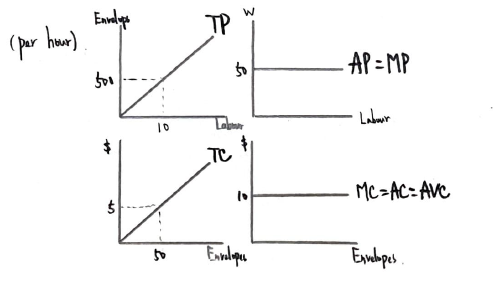 (per hour).
Envelops
TP
500
10
Labour
W
50
AP = MP
Labour
$
TC
5
50
Envelopes
$
10
MC=AC=AVC
Envelopes.